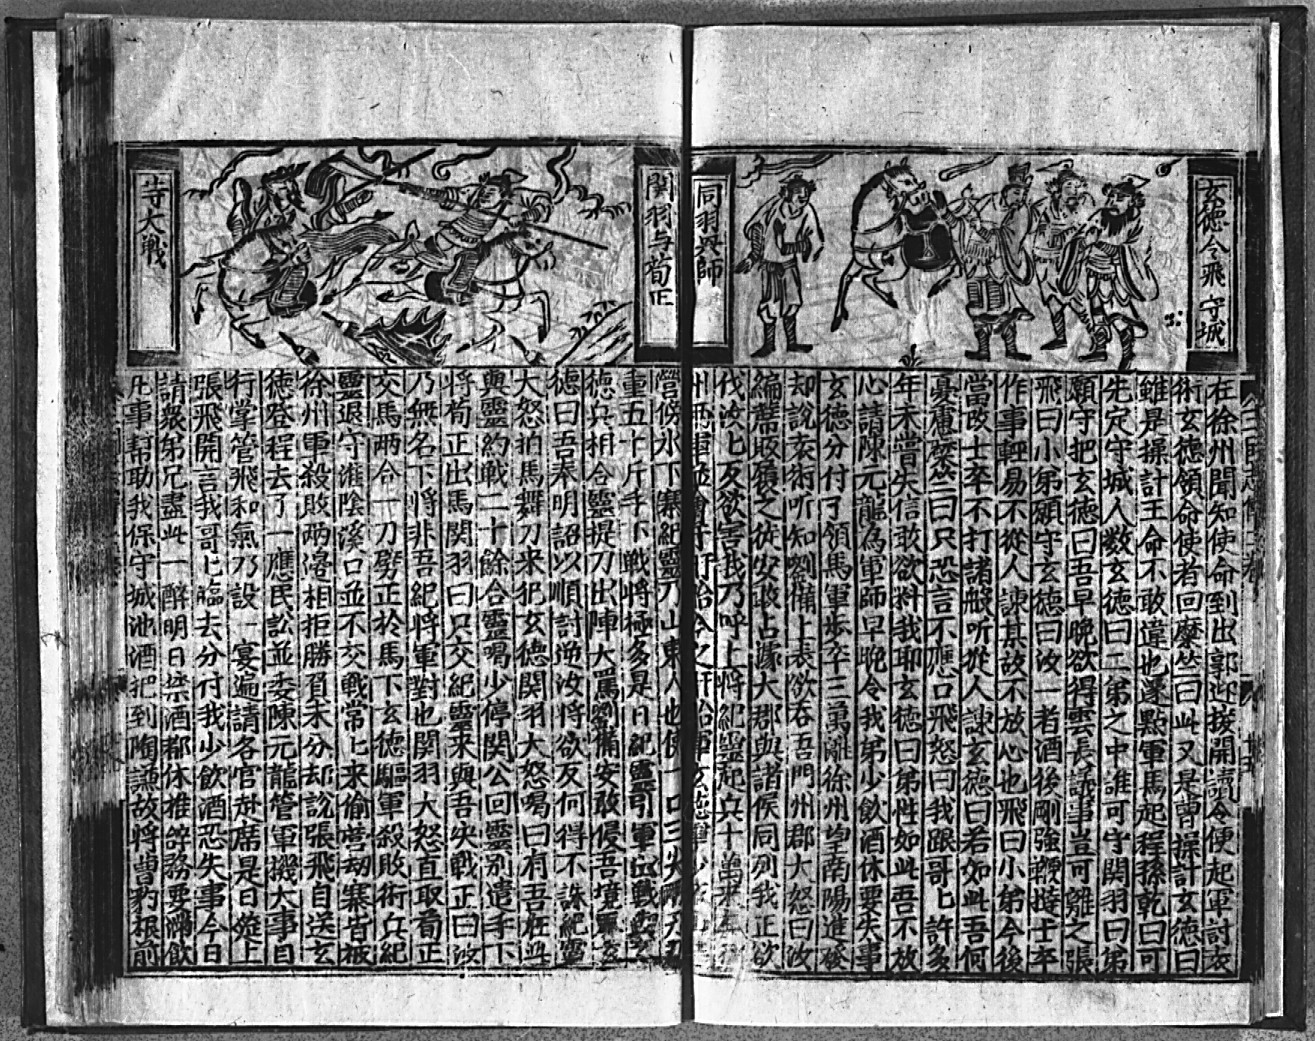 玄德令飛守城
同羽興師
在徐州聞知使命到出郭迎接開讀令便起軍討袁
術玄德領命使者回糜竺曰此又是曹操計玄德曰
雖是操計王命不敢違也遂點軍馬起程孫乾曰可
先定守城人數玄德曰二弟之中誰可守関羽曰弟
願守把玄德曰吾早晚欲得雲長議事豈可離之張
飛曰小弟願守玄德曰汝一者酒後剛強鞭撻士卒
作事輕易不從人諫其故不放心也飛曰小弟今後
當改士卒不打諸般听從人諫玄德曰若如此吾何
憂慮糜竺曰只恐言不應口飛怒曰我跟哥匕許多
年未嘗失信敢欲料我耶玄德曰弟性如此吾不放
心請陳元龍為軍師早晚令我弟少飲酒休要失事
玄德分付了領馬軍步卒三萬離徐州望南陽進發
却說袁術听知劉備上表欲吞吾門州郡大怒曰汝
編蓆販履之徒安敢占據大郡與諸侯同列我正欲
伐汝匕反欲害我乃呼上將紀靈起兵十萬來
関羽与荀正
寺大戰
營傍水下寨紀靈乃山東人也使一口三尖
重五十斤手下戰將極多是日紀靈引軍
德兵相合靈提刀出陣大罵劉備安敢侵吾境
德曰吾奉明詔以順討逆汝將欲反何得不誅紀靈
大怒拍馬舞刀來犯玄德関羽大怒喝曰有吾在此
與靈約戰二十餘合靈喝少停関公回靈別遣手下
將荀正出馬関羽曰只交紀靈來與吾决戰正曰汝
乃無名下將非吾紀將軍對也関羽大怒直取荀正
交馬两合一刀劈正於馬下玄德驅軍殺敗術兵紀
靈退守淮陰溪口並不交戰常匕來偷營刼寨皆被
徐州軍殺敗两邊相拒勝負未分却說張飛自送玄
德登程去了一應民訟並委陳元龍管軍機大事自
行掌管飛和氣乃設一宴遍請各官赴席是日筵上
張飛開言我哥匕臨去分付我少飲酒恐失事今日
請衆弟兄盡此一醉明日禁酒都休推辞務要滿飲
凢事幫助我保守城池酒把到陶謙故將曹豹根前